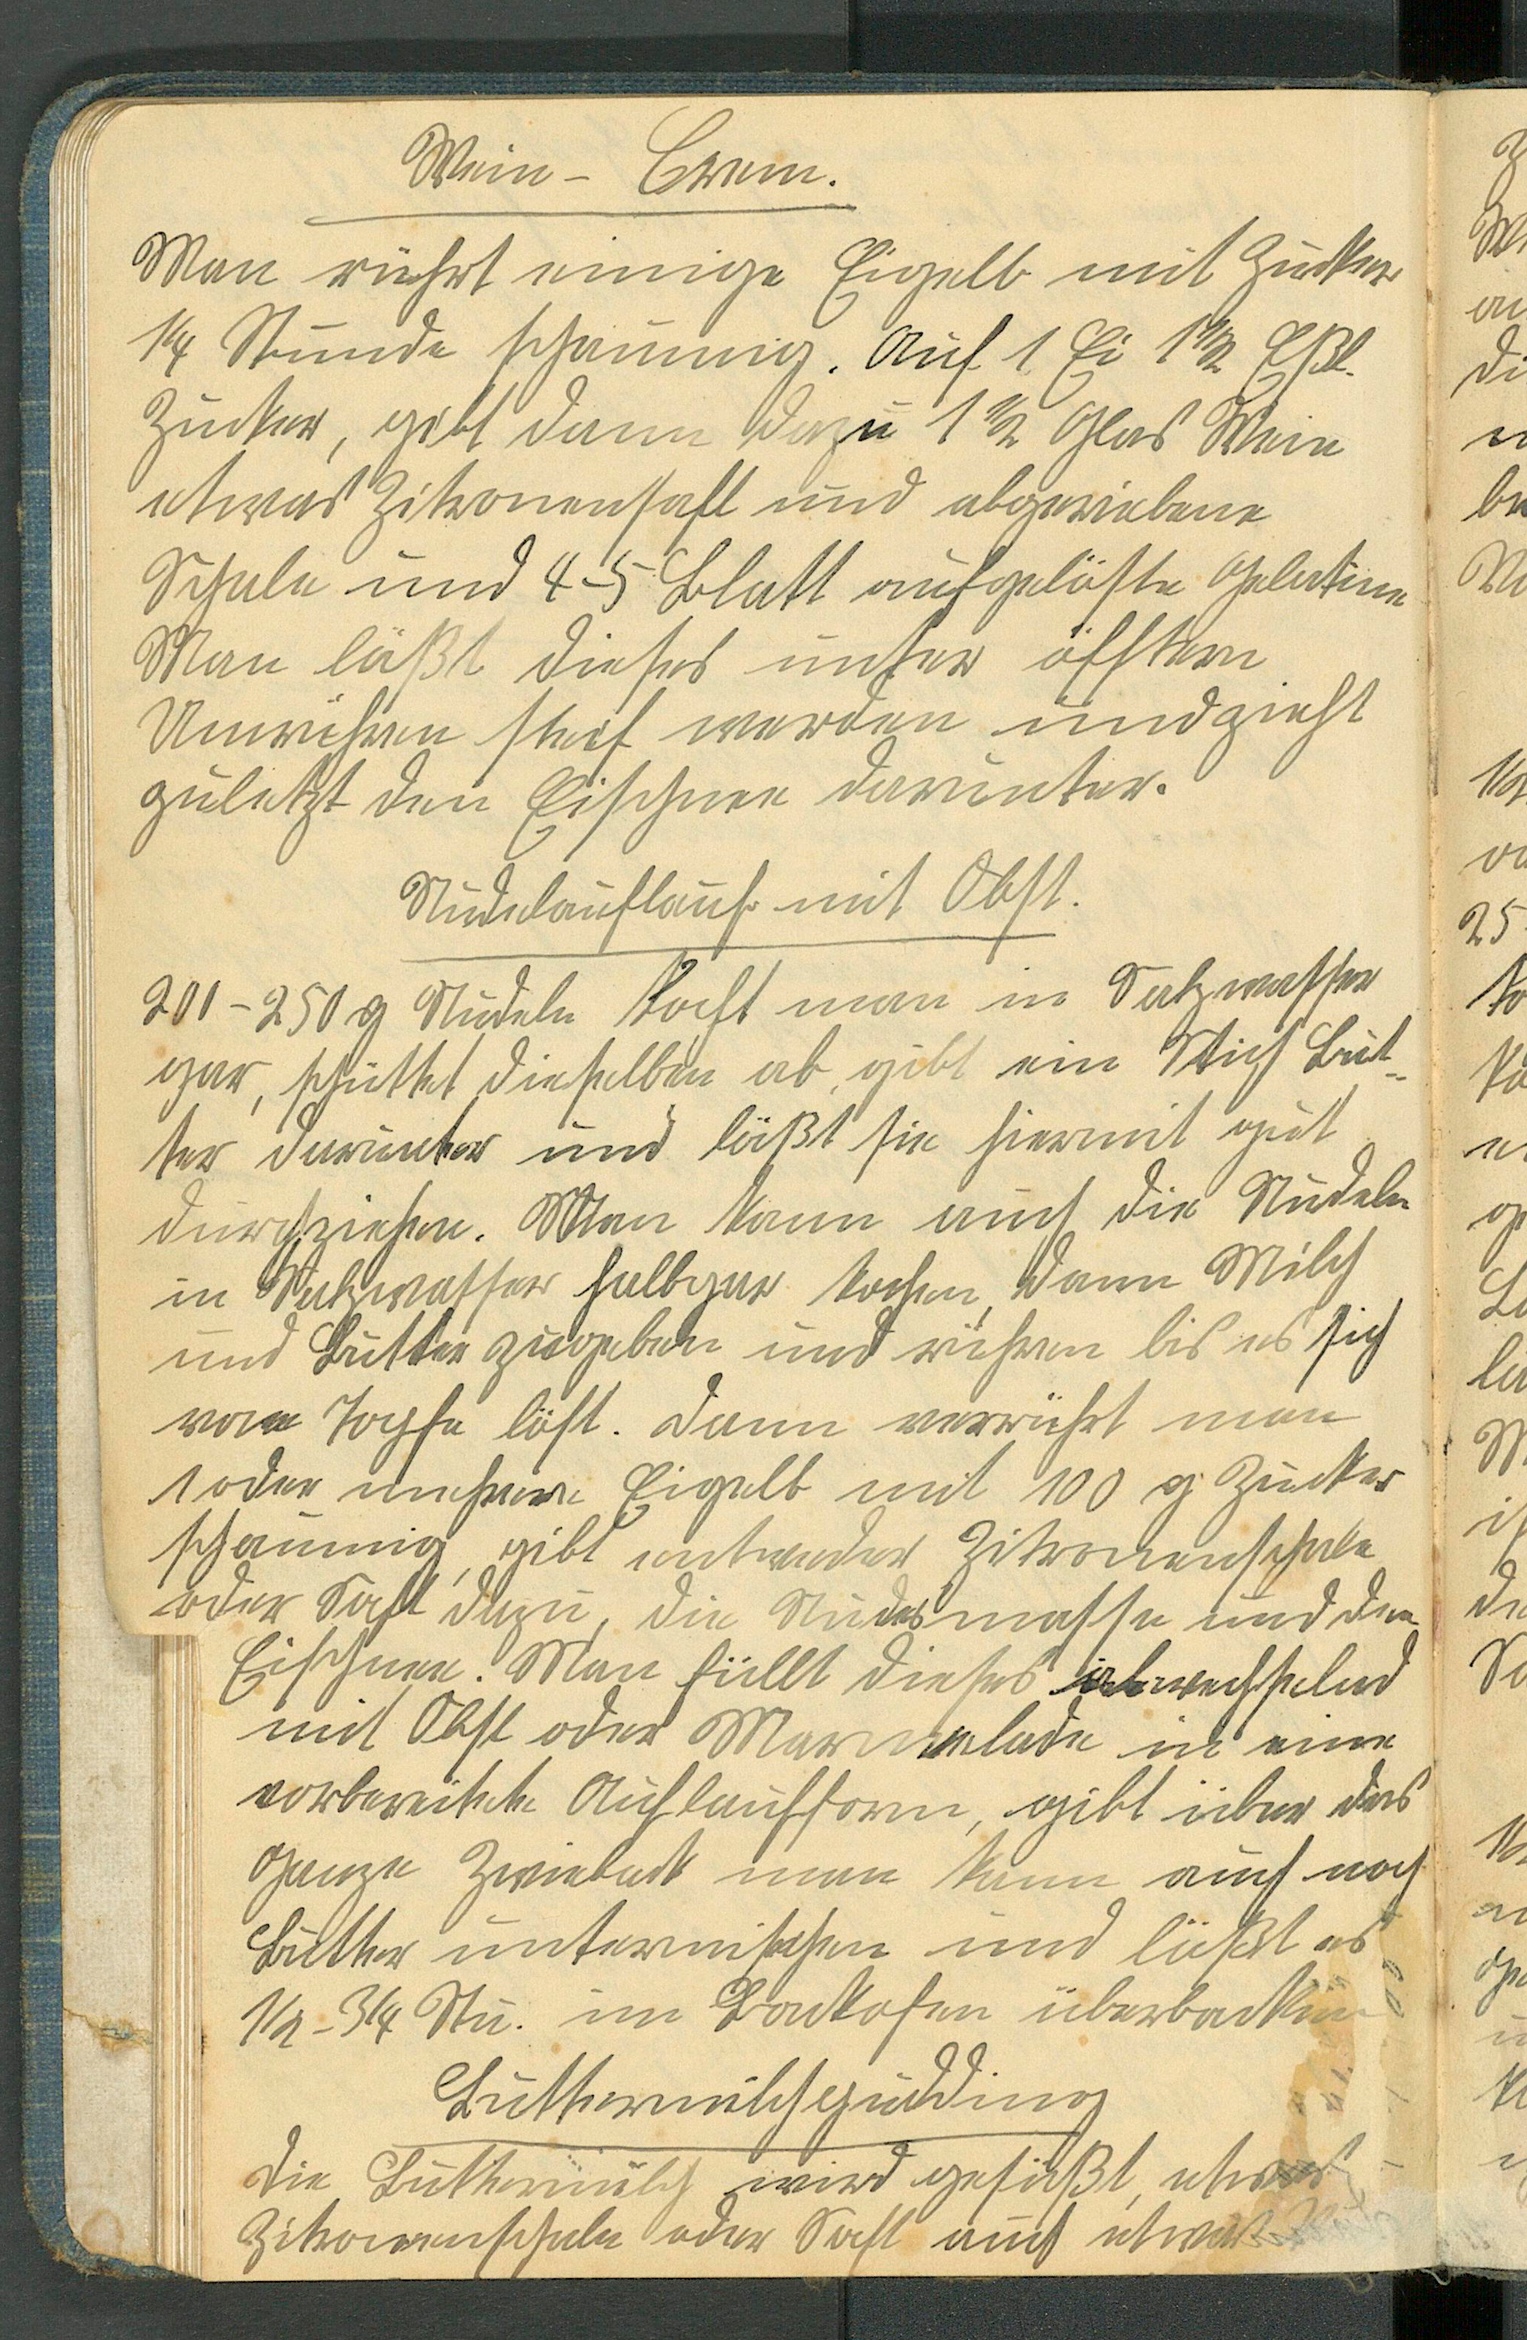 Wein- Crem.
Man rührt einige Eigelb mit Zucker
1/4 Stunde schaumig. Auf 1 Ei 1 1/2 Eßl.
Zucker, gibt dann dazu 1 1/2 Glas Wein
etwas Zitronensaft und abgeriebene
Schale und 4-5 Blatt aufgelöste Gelatine
Man läßt dieses unter öfftern
Umrühren steif werden und zieht
zuletzt den Eischnee darunter.
Nudelauflauf mit Obst.
200-250 g Nudeln kocht man in Salzwasser
gar, schüttet dieselben ab, gibt ein Stich But-
ter darunter und läßt sie hiermit gut
durchziehen. Man kann auch die Nudeln
in Salzwasser halbgar kochen, dann Milch
und Butter zugeben und rühren bis es sich
vom Topfe löst. Dann verrührt man
1 oder mehrere Eigelb mit 100 g Zucker
schaumig, gibt entweder Zitronenschale
oder Saft dazu, die Nudelmasse und den
Eischnee. Man füllt dieses abwechselnd
mit Obst oder Marmelade in eine
vorbereitete Auflaufform, gibt über das
Ganze Zwieback man kann auch noch
Butter untermischen und läßt es
1/2-3/4 Stu. im Backofen überbacken
Buttermilchpudding
Die Buttermilch wird gesüßt, etwas
Zitronenschale oder Saft auch etwas